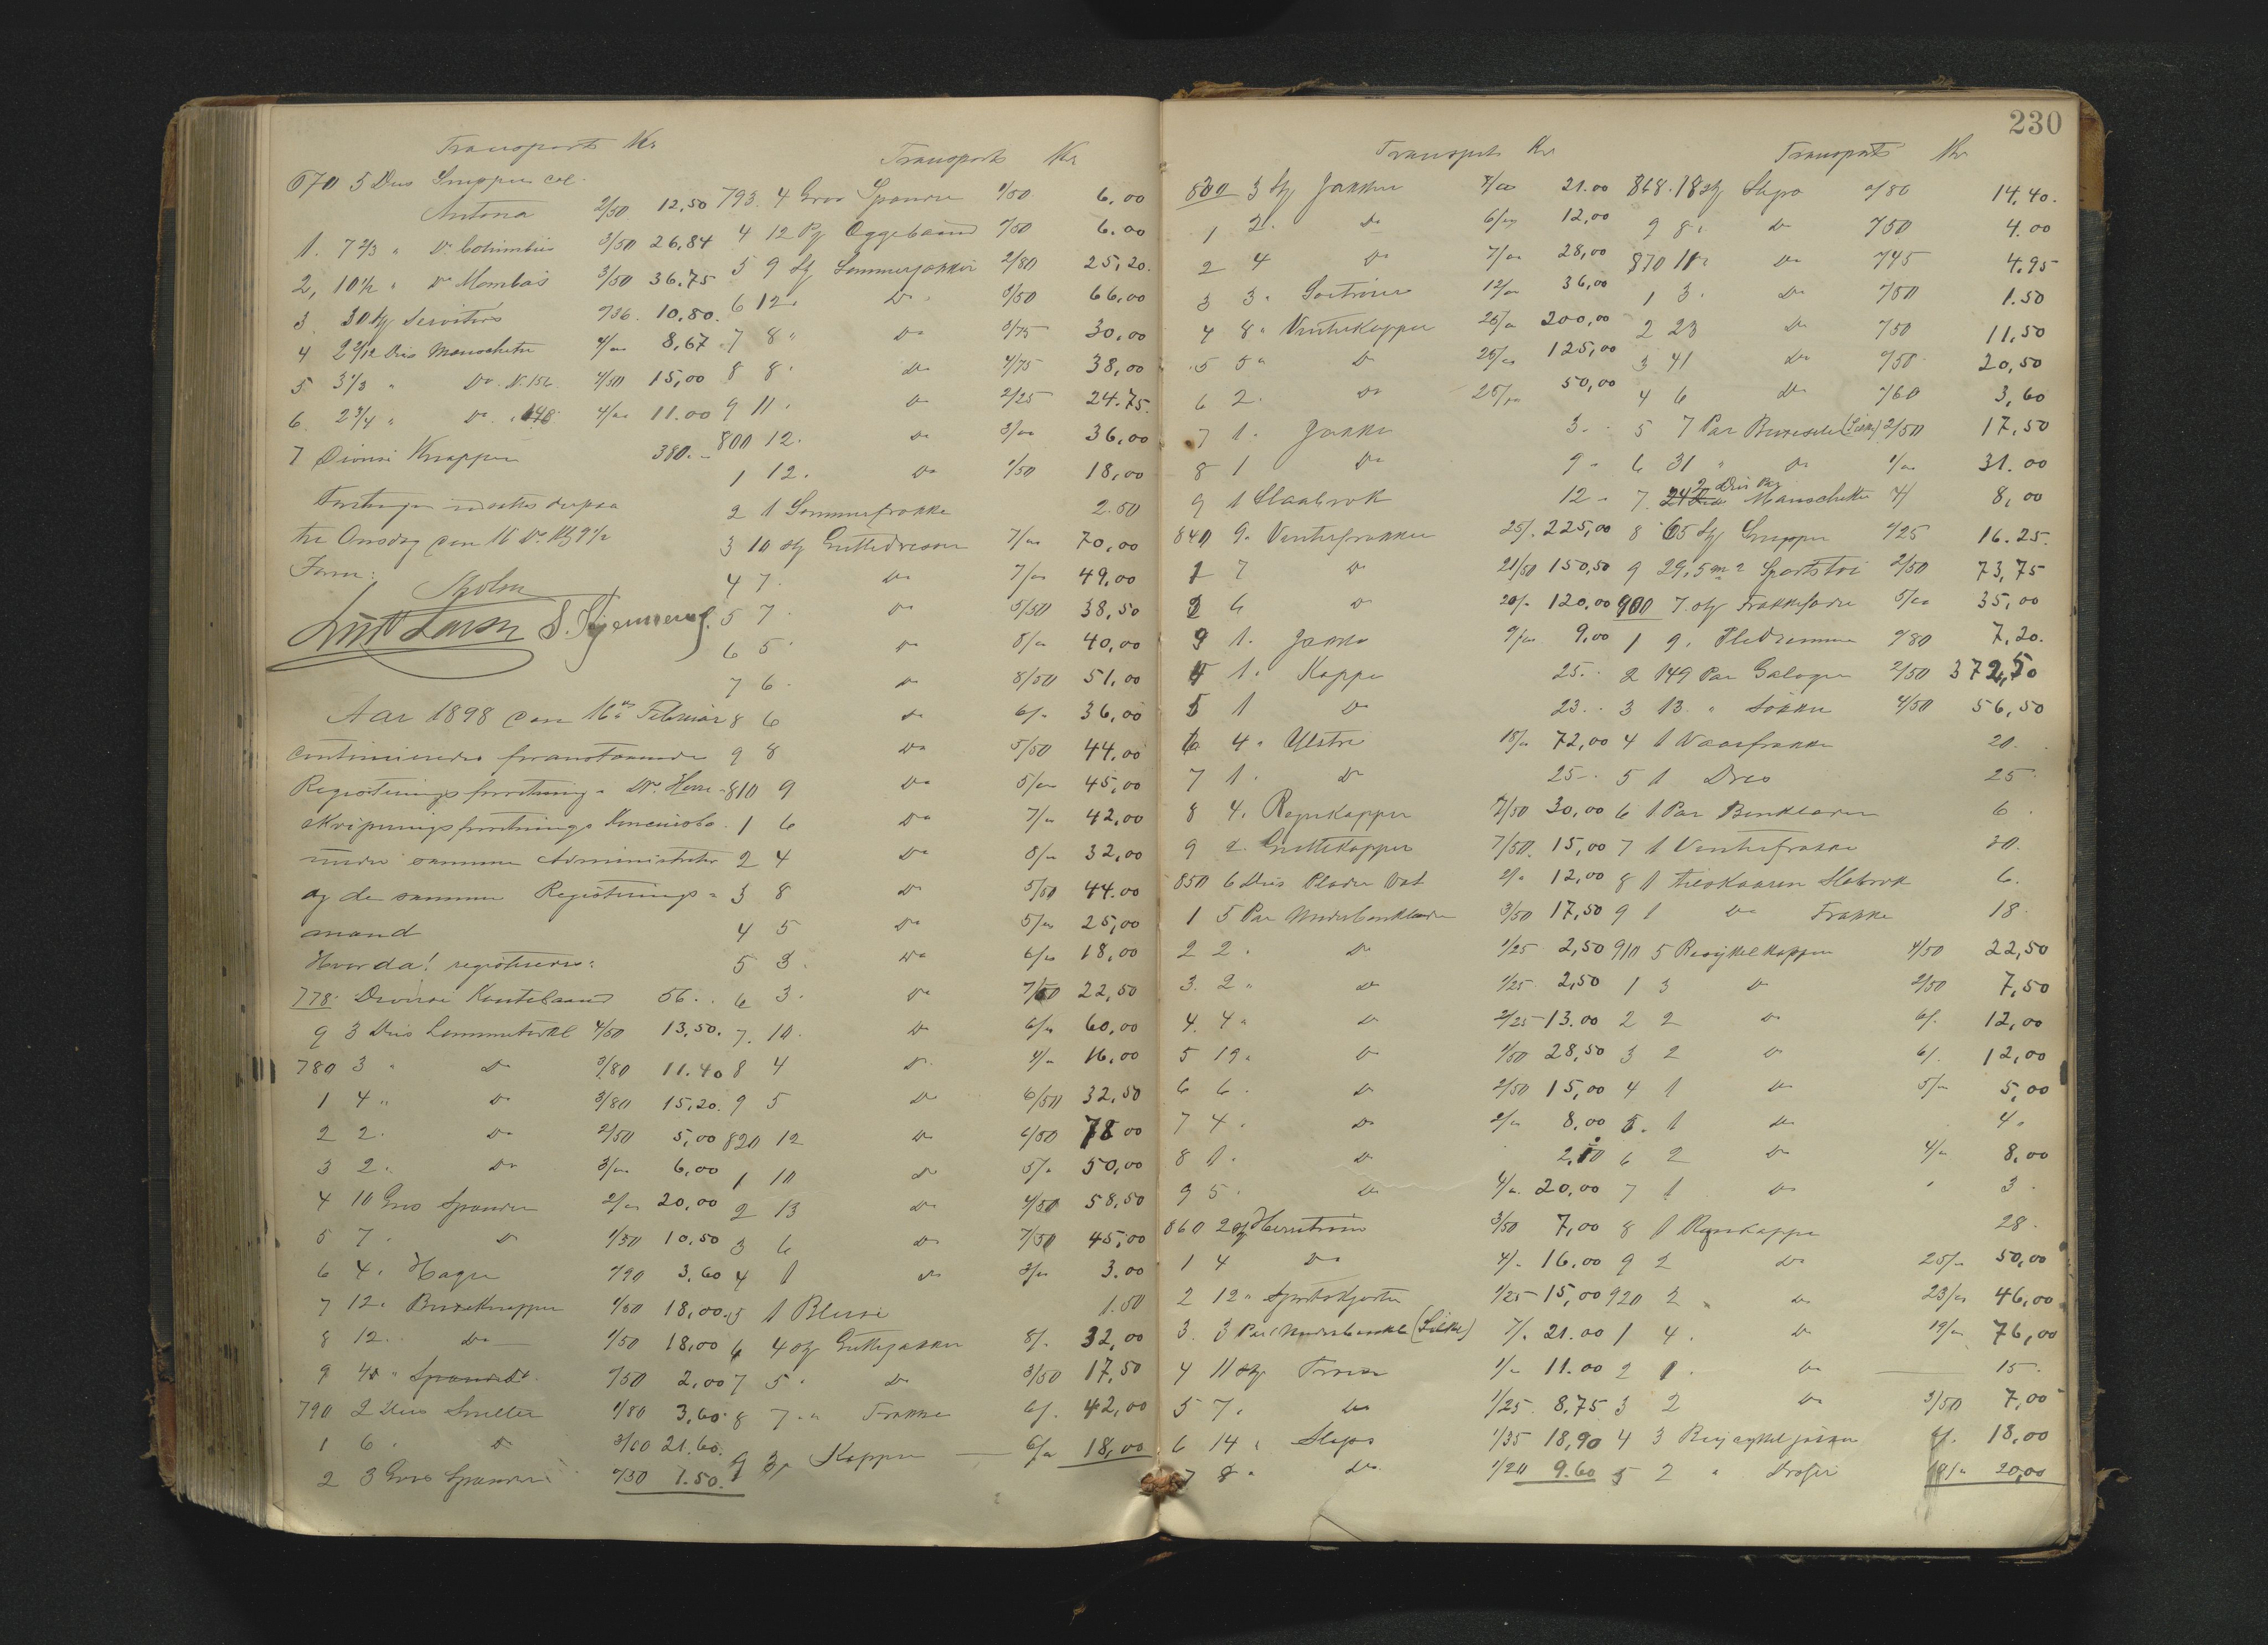 230
Transport Kr
670 5 Dus Snipper col.
Antona 2/50 12,50
1. 7 2/3 " Do Columbus 3/50 26,84
2, 10 1/2 " Do Mombas 3/50 36.75
3. 30 Stk Serviters 0/36 10,80.
4 2 2/12 Dus Manschetter 4/00 8,67
5 3 1/3 " Do. N. 156 4/50 15,00
6. 2 3/4 " Do. 148 4/00 11.00
7 Diverse Knapper 380.-
Forretningen udsattes derpaa
til Onsdag den 16 Ds. Kl 9 1/2
Form:
Holm
Larsen S.
Aar 1898 den 16de Februar
continueredes foranstaaende
Registreringsforretning i Dhr. Herre-
ekviperingsforretnings Konkursbo.
under samme Administrator
og de samme Registrerings-
mænd
Hvorda! registreredes:
778. Diverse Kantebaand 56..
9 3 Dus Lommetørkl 4/50 13,50.
780 3 " Do 3/80 11.40
1 4 " Do 3/80 15,20.
2 2. Do 2/50 5,00
3 2. Do 3/00 6,00
4 10 Gros Spænder 2/00 20,00
5 7 . Do 1/50 10,50
6 4. Hager 0/90 3,60
7 12. Buxeknapper 1/50 18,00
8 12. Do 1/50 18,00
9 4 " 0/50 2,00
790 2 Dus 1/80 3,60
1 6 . Do 3/60 21.60.
2 3 Gros Spænder 0/50 1.50.
Transport Kr
793. 4 Gros Spænder 1/50 6,00
4 12 Pk Æggebaand 0/50 6.00
5 9 Stk Sommerjakker 2/80 25,20.
6 12. Do. 5/50 66,00
7 8 " Do 3/75 30,00
8 8. Do 4/75 38,00
9 11. Do 2/25 24.75.
800 12. Do 3/00 36,00
1 12. Do 1/50 18,00
2 1 Sommerfrakke 2.50
3 10 Stk Guttedresser 7/00 70,00
4 7. Do 7/00 49,00
5 7. Do 5/50 38,50
6 5. Do 8/00 40,00
7 6. Do 8/50 51,00
8 6 Do 6/- 36,00
9 8 Do 5/50 44,00
810 9 Do 5/00 45,00
1 6 Do 7/00 42,00
2 4 Do 8/00 32,00
3 8 Do 5/50 44.00
4 5 Do 5/00 25,00
5 3. Do 6/00 18,00
6 3. Do 7/50 22,50
7. 10. Do 6/00 60,00
8 4 Do 4/00 16,00
9 5 Do 6/50 32,50
820 12 Do 6/50 78 00
1 10 Do 5/- 50,00
2 13 Do 4/50 58,50
3 6 Do 7/50 45,00
4 1 Do 3/00 3.00
5 1 Bluse 1.50
6 4 Stk Guttejakker 8/- 32,00
7 5 . Do 3/50 17,50
8 7 . " Frakke 6/. 42,00
9 3 " Kapper 6/00 18,00
Transport Kr
830 3 Stk Jakker 7/00 21.00
1 2. Do 6/00 12,00
2 4 Do 7/00 28,00
3 3. 12/00 36,00
4 8. Vinterkapper 25/00 200,00
5 5 " Do 25/00 125,00
6 2. Do 25/00 50,00
7 1. Jakke 3.-
8 1 Do 9-
9 1 Slaabrok 12-
840 9. Vinterfrakker 25/. 225,00
1 7 Do 21/50 150,50
2 6 Do 20/- 120,00
3 1. Jakke 9/00 9,00
4 1. Kappe 25.-
5 1 Do 23.-
6 4. Ulstre 18/00 72,00
7 1. Do 25-.
8 4. Regnkapper 7/50 30,00
9 2. Guttekapper 7/50. 15,00
850 6 Dus Vat 2/- 12,00
1 5 Par Underbenklæder 3/50 17,50
2 2. Do 1/25 2,50
3. 2 " Do 1/25 2,50
4. 4 " Do 3/25 13.00
5 19 " Do 1/50 28,50
6 6. Do 2/50 15,00
7 4. Do 2/00 8,00
8 1. Do 2,10
9 5. Do 4/00 20,00
860 2 Stk 3/50 7,00
1 4 Do 4/- 16,00
2 12 " Sportskjorter 1/25 15,00
3. 3 Par Underbenkl (Silke) 7/. 21.00
4 11 Stk Trøier 1/- 11.00
5 7. Do 1/25 8,75
6 14 " Slips 1/35 18,90
7 8 " Do. 1/20 9.60
Transport Kr
868. 18 Stk Slips 0/80 14,40.
9 8. Do 0/50 4.00
870 11. Do 0/45 4.95
1 3. Do 0/50 1.50
2 23 Do 0/50 11,50
3 41 Do 0/50 20,50
4 6 Do 0/60 3,60
5 7 Par Buxeseler (Silke) 2/50 17,50
6 31 " Do 1/00 31.00
7. 2 Dus Par Manschetter 4/ 8,00
8 65 Stk Snipper 0/25 16.25.
9 29,5 m Sportstøi 2/50 73,75
900 7 Stk Frakkefoder 5/00 35,00
1 9. Pledremme 0/80 7,20.
2 149 Par Galoger 2/50 372,50
3 13. " Sokker 4/50 56,50
4 1 Vaarfrakke 20.
5 1 Dres 25.
6 1 Par Benklæder 6.
7 1 Vinterfrakke 20.
8 1 tilskaaren Slobrok 6.
9 1 Do Frakke 18.
910 5 Bicykelkapper 4/50 22,50
1 3 Do 2/50 7,50
2 2 Do 6/. 12,00
3 2 Do 6/. 12,00
4 1 Do 5/00 5,00
5. 1 Do 4.
6 2 Do 4/00 8,00
7 1 Do 3.
8 1 Regnkappe 28.
9 2 Do 25/00 50,00
920 2 Do 23/00 46,00
1 4. Do 19/00 76,00
2 1. Do 15.
3 2 Do 3/50 7,00
4 3 Bicykeljakker 6/. 18,00
5 2 " 10/00 20,00